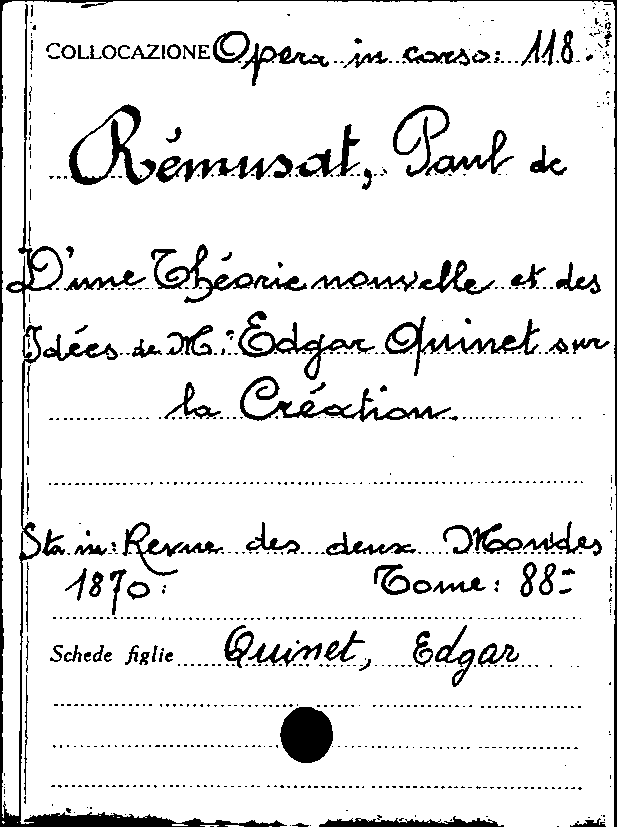 COLLOCAZIONE Opera in corso: 118.
Rémusat, Paul de
D'une Théorie nouvelle et des
Idées de M.r Edgar Quinet sur
la Création.
Sta in: Revue des deux Mondes
1870. Tome: 88=
Schede figlie Quinet, Edgar